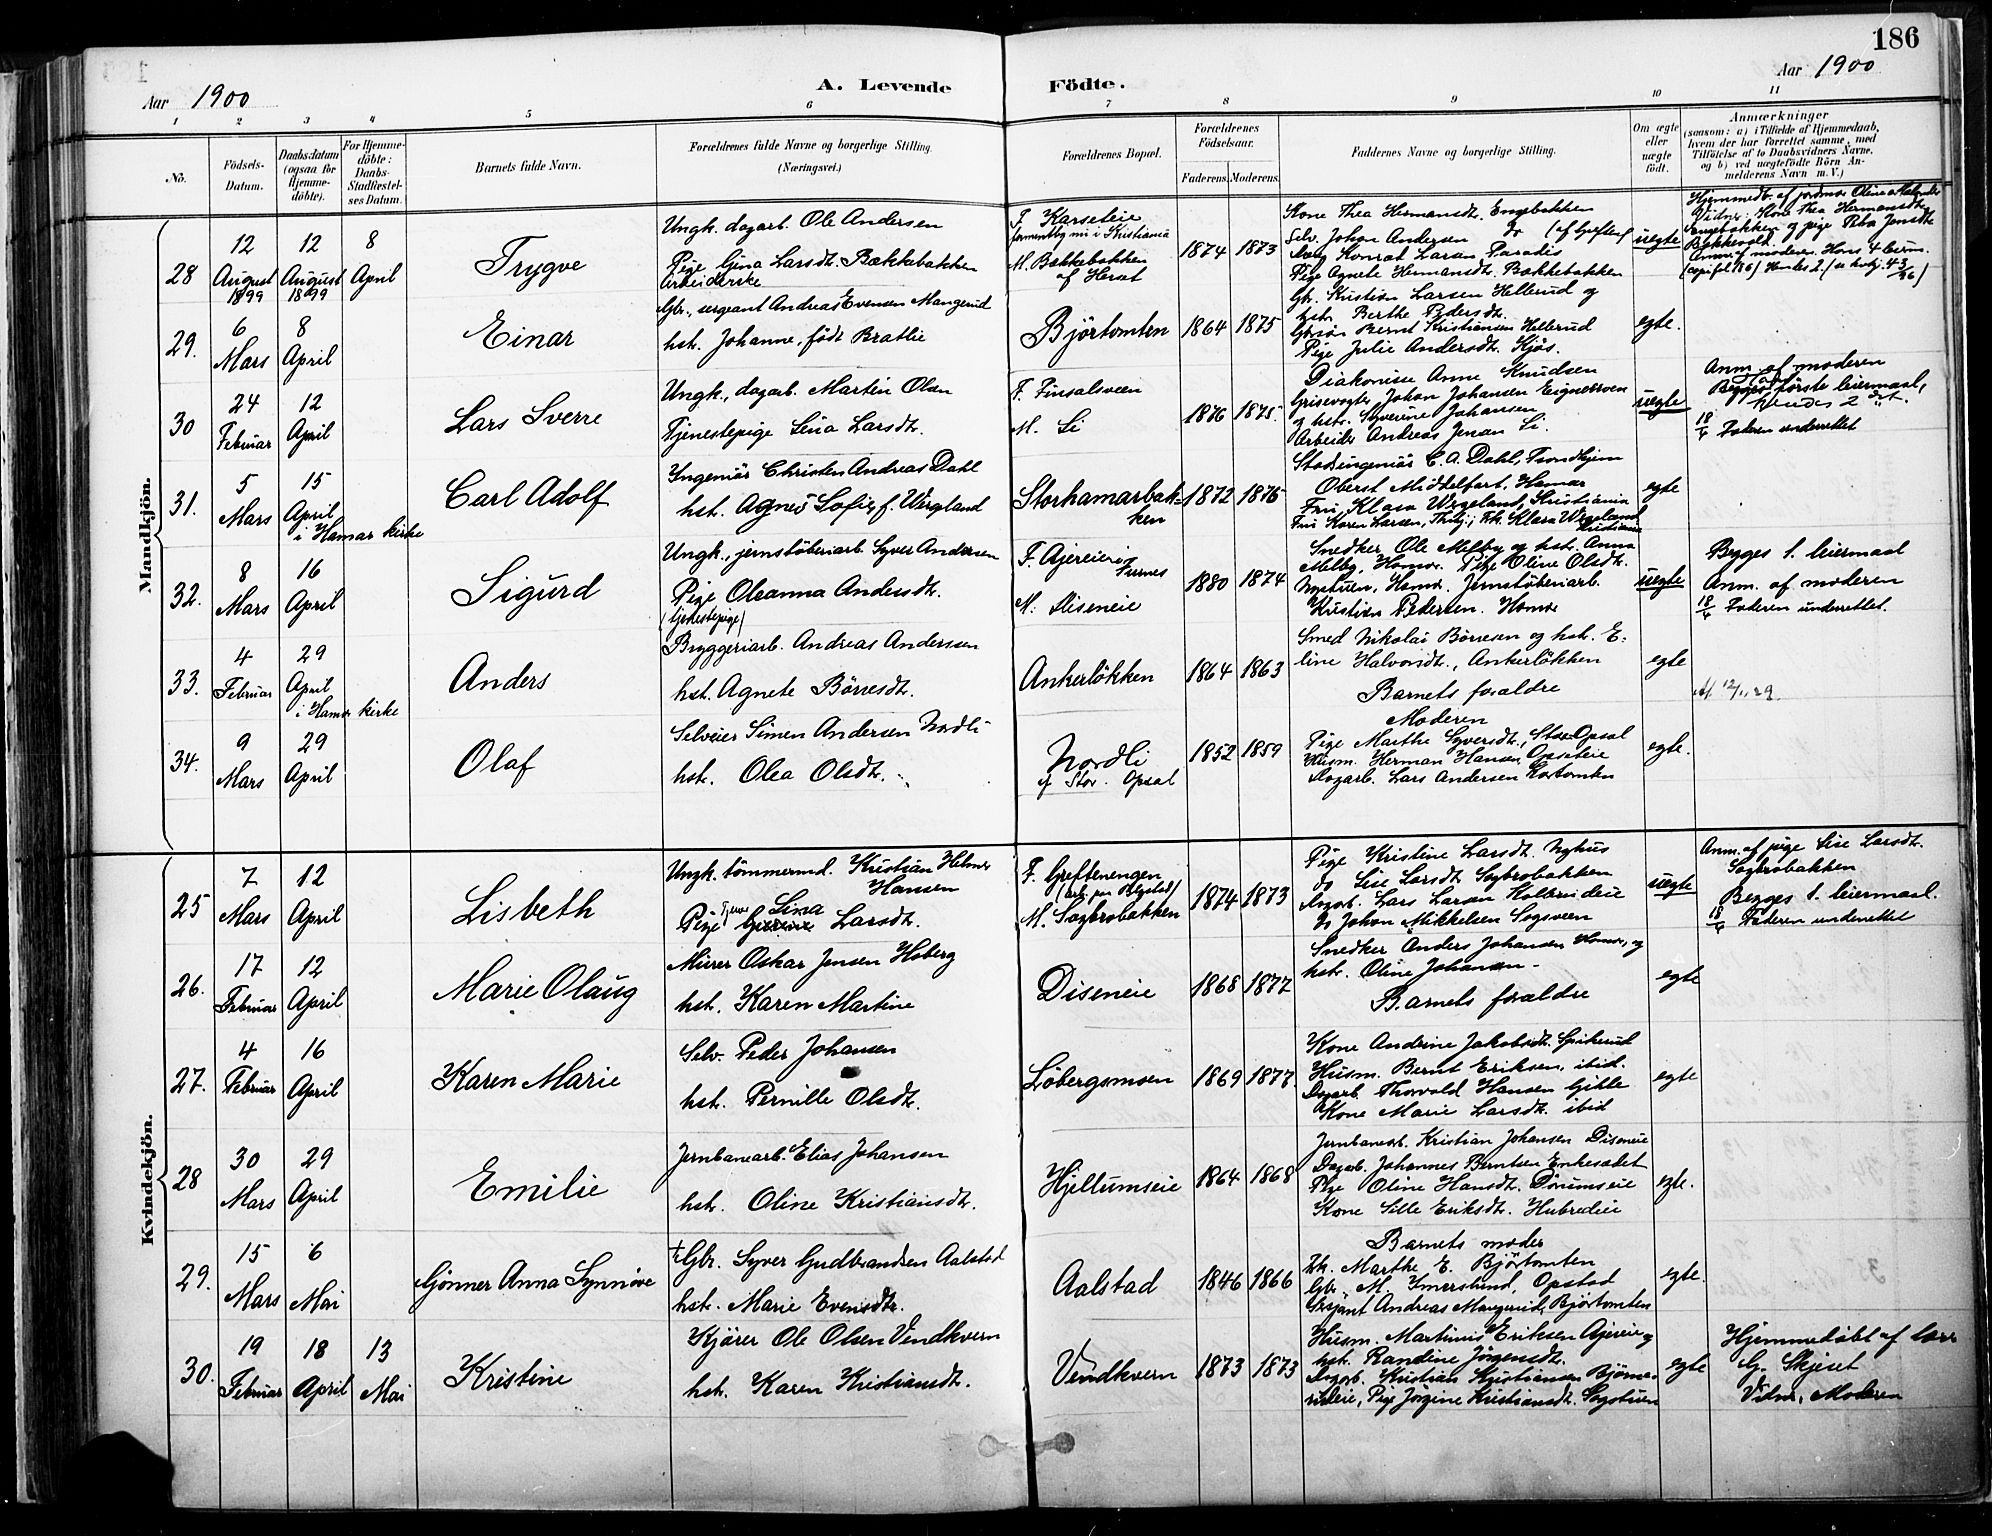 186
Aar 1900
A. Levende
Födte.
Aar 1900
1 2 3 4 5 6 7 8 9 10 11
No.
Födsels-Datum.
Daabsdatum (ogsaa for Hjemme-döbte).
For Hjemme-döbte: Daabs-Stadfæstel-ses Datum.
Barnets fulde Navn.
Forældrenes fulde Navne og borgerlige Stilling.
(Næringsvei.)
Forældrenes Bopæl.
Forældrenes Födselsaar.
Faderens. Moderens.
Faddernes Navne og borgerlige Stilling.
Om ægte eller uægte födt.
Anmærkninger
(saasom: a) i Tilfælde af Hjemmedaab,
hvem der har forrettet samme, med
Tilföielse af to Daabsvidners Navne,
og b) ved uægtefödte Börn An-
melderens Navn m. V.)
Mandkjön.
28
12 August 1899
12 August 1899
8 April
Trygve
Ungk. dagarb. Ole Andersen
Pige Gina Larsdt. Bækkebakken
Arbeiderske
F. Karseteie
M. Bækkebakken
af Hersat
1874 1873
Kone Thea Hermansdt. Engebakken
Selv. Johan Andersen do
Konrad Larsen Paradis
Pige Agnete Hermansdt. Bakkebakken
uegte
Hjemmedbt. af jordmor Oline
Vidner: Kone Thea Hermansdt.
Engebakken og pige Petra Jensdt.
Bakkevold.
29.
6 Mars
8 April
Einar
Gbr., sergeant Andreas Evensen Mangerud
hst. Johanne, födt Bratlie
Björtomten
1864 1875
Gbr. Kristian Larsen Hellerud og
hst. Berthe Pedersdt.
Gbrsön Bernt Kristiansen Hellerud
Pige Julie Andersdt. Kjös.
egte.
30
24 Februar
12 April
Lars Sverre
Ungk., dagarb. Martin Olsen
Tjenestepige Lina Larsdt.
F. Finsalsveen
M. Li
1876 1875.
Diakonisse Anne Knudsen
Grisevogter Johan Johansen Eignersveen
og hst. Syverine Johansen
Arbeider Andreas Jensen Li.
uegte
Anm. af moderen
Begges förste leiermaal,
hendes 2 det.
18/4 Faderen underrettet
31.
5 Mars
15 April
i Hamar kirke
Carl Adolf
Ingeniör Christen Andreas Dahl
hst. Agnes Sofie, f. Wergland
Storhamarbak-
ken
1872 1876
Stadsingeniör C. A. Dahl, Trondhjem
Oberst Middelfart, Hamar
Fru Klara Wergeland, Kristiania
Fru Karen Larsen, Thlj.; Frk. Klara Wergeland
Kristiania
egte
32.
8 Mars
16 April
Sigurd
Ungk., jernstöberiarb. Syver Andersen
Pige Oleanna Andersdt.
(tjenestepige)
F. Ajereie
Furnes
M. Diseneie
1880 1874
Snedker Ole Melby og hst. Anna
Melby, Hamar. Pige Oline Olsdt.
Nystuen, Hamar. Jernstöberiarb.
Kristian Pedersen. Hamar
uegte
Begges 1. leiermaal
Anm. af moderen
18/4 Faderen underrettet.
33.
4 Februar
29 April
i Hamar kirke
Anders
Bryggeriarb. Andreas Anderssen
hst. Agnete Börresdt.
Ankerlökken
1864 1863
Smed Nikolai Börresen og hst. E-
line Halvorsdt., Ankerlökken
Barnets forældre
egte
At. 12/11 29.
34.
9 Mars
29 April
Olaf
Selveier Simen Andersen Nordli
hst. Olea Olsdt.
Nordli
af Stor. Opsal
1852 1859
Moderen
Pige Marthe Syversdt., Stor Opsal
Husm. Herman Hansen Opsaleie
Dagarb. Lars Andersen
egte.
Kvindekjön.
25
7 Mars
12 April
Lisbeth
Ungk. tömmermd. Kristian Helmer
Hansen
Pige Lina Larsdt.
F. Grefteneengen
M. Sagbrobakken
1874 1873
Pige Kristine Larsdt. Nyhus
do Lise Larsdt. Sagbrobakken
Dagarb. Lars Larsen
do Johan Mikkelsen Sogsveen
uegte
Anm. af pige Lise Larsdt.
Sagbrobakken
Begges 1. leiermaal.
18/4 Faderen underrettet
26.
17 Februar
12 April
Marie Olaug
Murer Oskar Jensen Hoberg
hst. Karen Martine
Diseneie
1868 1877
Snedker Anders Johansen Hamar, og
hst. Oline Johansen -
Barnets forældre
egte
27.
4 Februar
16 April
Karen Marie
Selv. Peder Johansen
hst. Pernille Olsdt.
Löbergsmoen
1869 1877.
Kone Andrine Jakobsdt. Spikerud
Husm. Bernt Eriksen, ibid.
Dagarb. Thorvald Hansen Gihle
Kone Marie Larsdt. ibid
egte
28
30 Mars
29 April
Emilie
Jernbanearb. Elias Johansen
hst. Oline Kristiansdt.
Hjellumseie
1864 1868
Jernbanearb. Kristian Johansen Diseneie
Dagarb. Johannes Berntsen Enkesædet
Pige Oline Hansdt. Dörumseie
Kone Sille Eriksdt. Hubredeie
egte.
29.
15 Mars
6 Mai
Gjönner Anna Synnöve
Gbr. Syver Gudbrandsen Aalstad
hst. Marie Evensdtr.
Aalstad
1846 1866
Barnets moder
Marthe E. Björtomten
Gbr. M. Imerslund, Opstad
Sersjant Andreas Mangerud, Björtomten
egte.
30.
19 Februar
18 April
13 Mai
Kristine
Kjörer Ole Olsen Vendkvern
hst. Karen Kristiansdt.
Vendkvern
1873 1873
Husm. Martinus Eriksen Ajereie og
hst. Randine Jörgensdt.
Dagarb. Kristian Kristiansen Björne-
rudeie, Pige Jörgine Kristiansdt. Sogstuen
egte
Hjemmedöbt af lærer
G. Skjeset
Vidner, Moderen